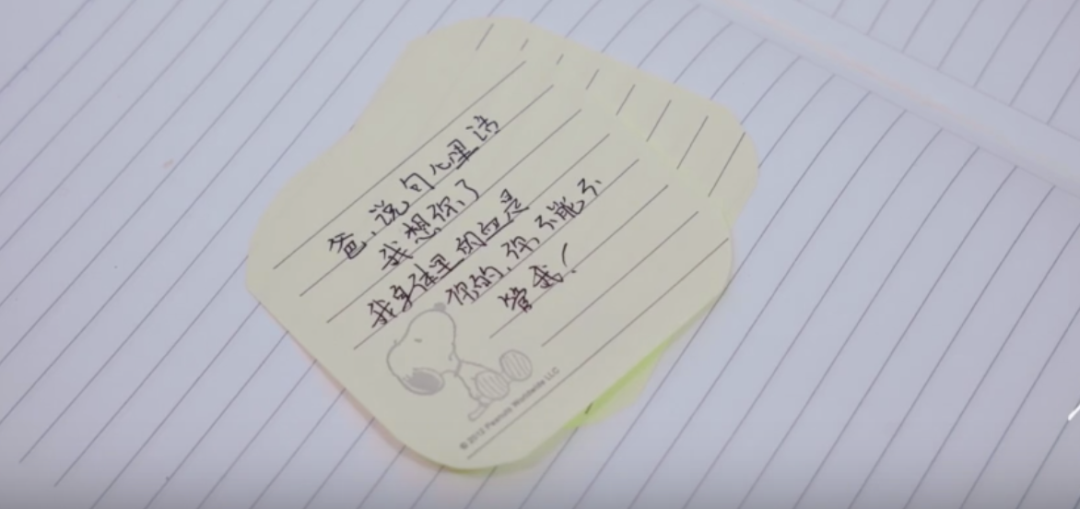 爸、说句心里话
我想你了
我身体里的血是
你的，你不能不
管我！
© 2012 Peanuts Worldwide LLC